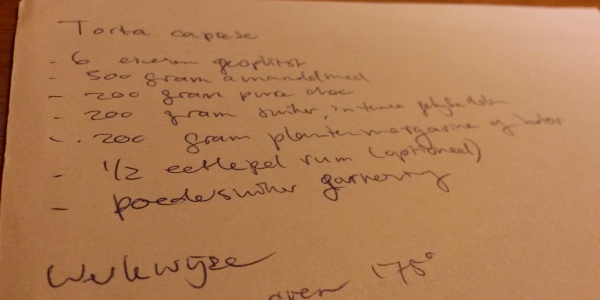 Torta caprese
- 6 eieren gesplitst
- 300 gram amandelmeel
- 200 gram pure choc
- 200 gram suiker, in twee gelijke delen
- 200 gram plantenmargarine of boter
- 1/2 eetlepel rum (optioneel)
- poedersuiker garnering
Werkwijze
oven 175°